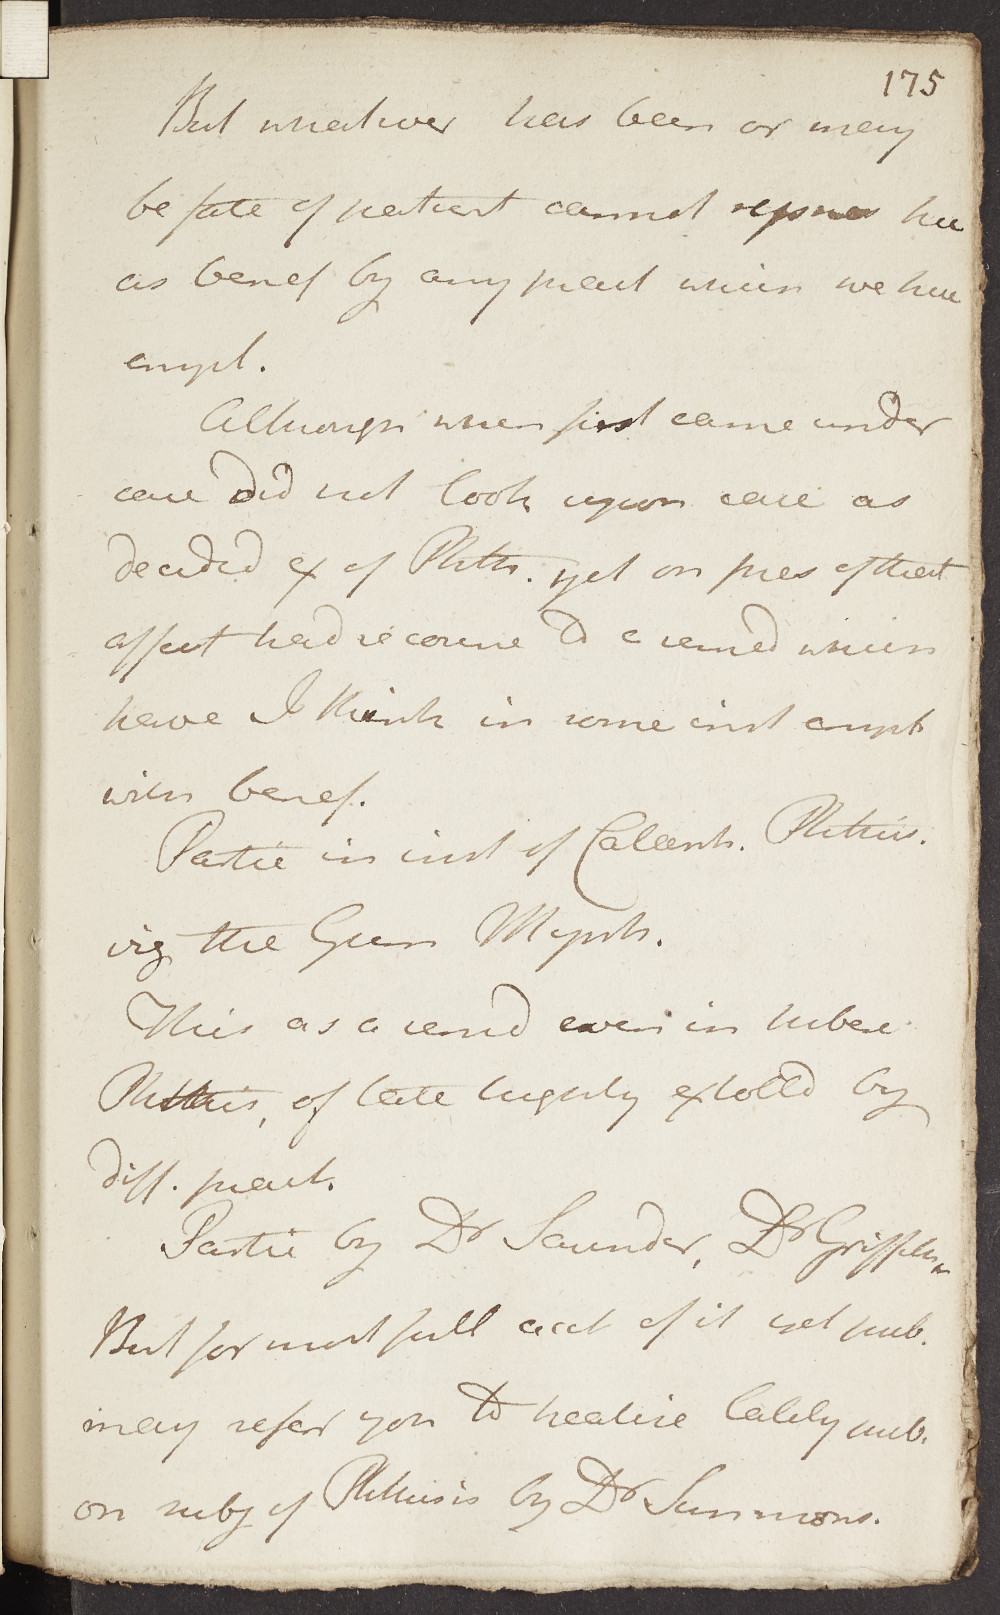 175
But whatever has been or may
be fate of patient cannot repres her
as benef by any pract which we have
empl.
Although when first came under
care did not look upon case as
decided ex of Phth. yet on pres of that
affect had recourse to a remed which
have I think in some inst empt
with benef.
Partic in inst of Catarrh. Phthis.
viz the Gum Myrrh.
This as a remd even in tuberc
Phthisis, of late highly extolld by
diff. pract.
Partic by Dr Saunder, Dr Griffith
But for most full acct of it yet pub.
may refer you to treatise lately pub.
on subj of Phthisis by Dr Simmons.